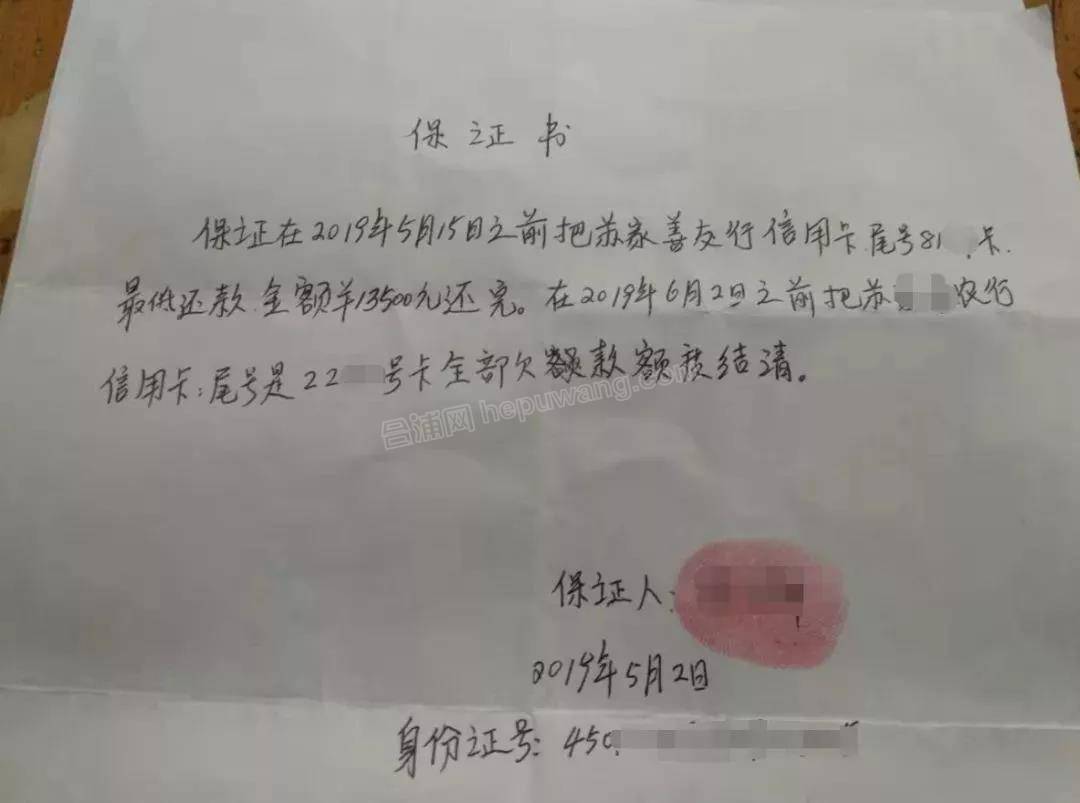 保证书
保证在2019年5月15日之前把苏家善农行信用卡.尾号81 卡.
最低还款金额羊13500元还完。在2019年6月2日之前把苏 农行
信用卡:尾号是22 号卡全部欠款额度结清。
合浦网 hepuwang.com
保证人:
2019年5月2日
身份证号: 450